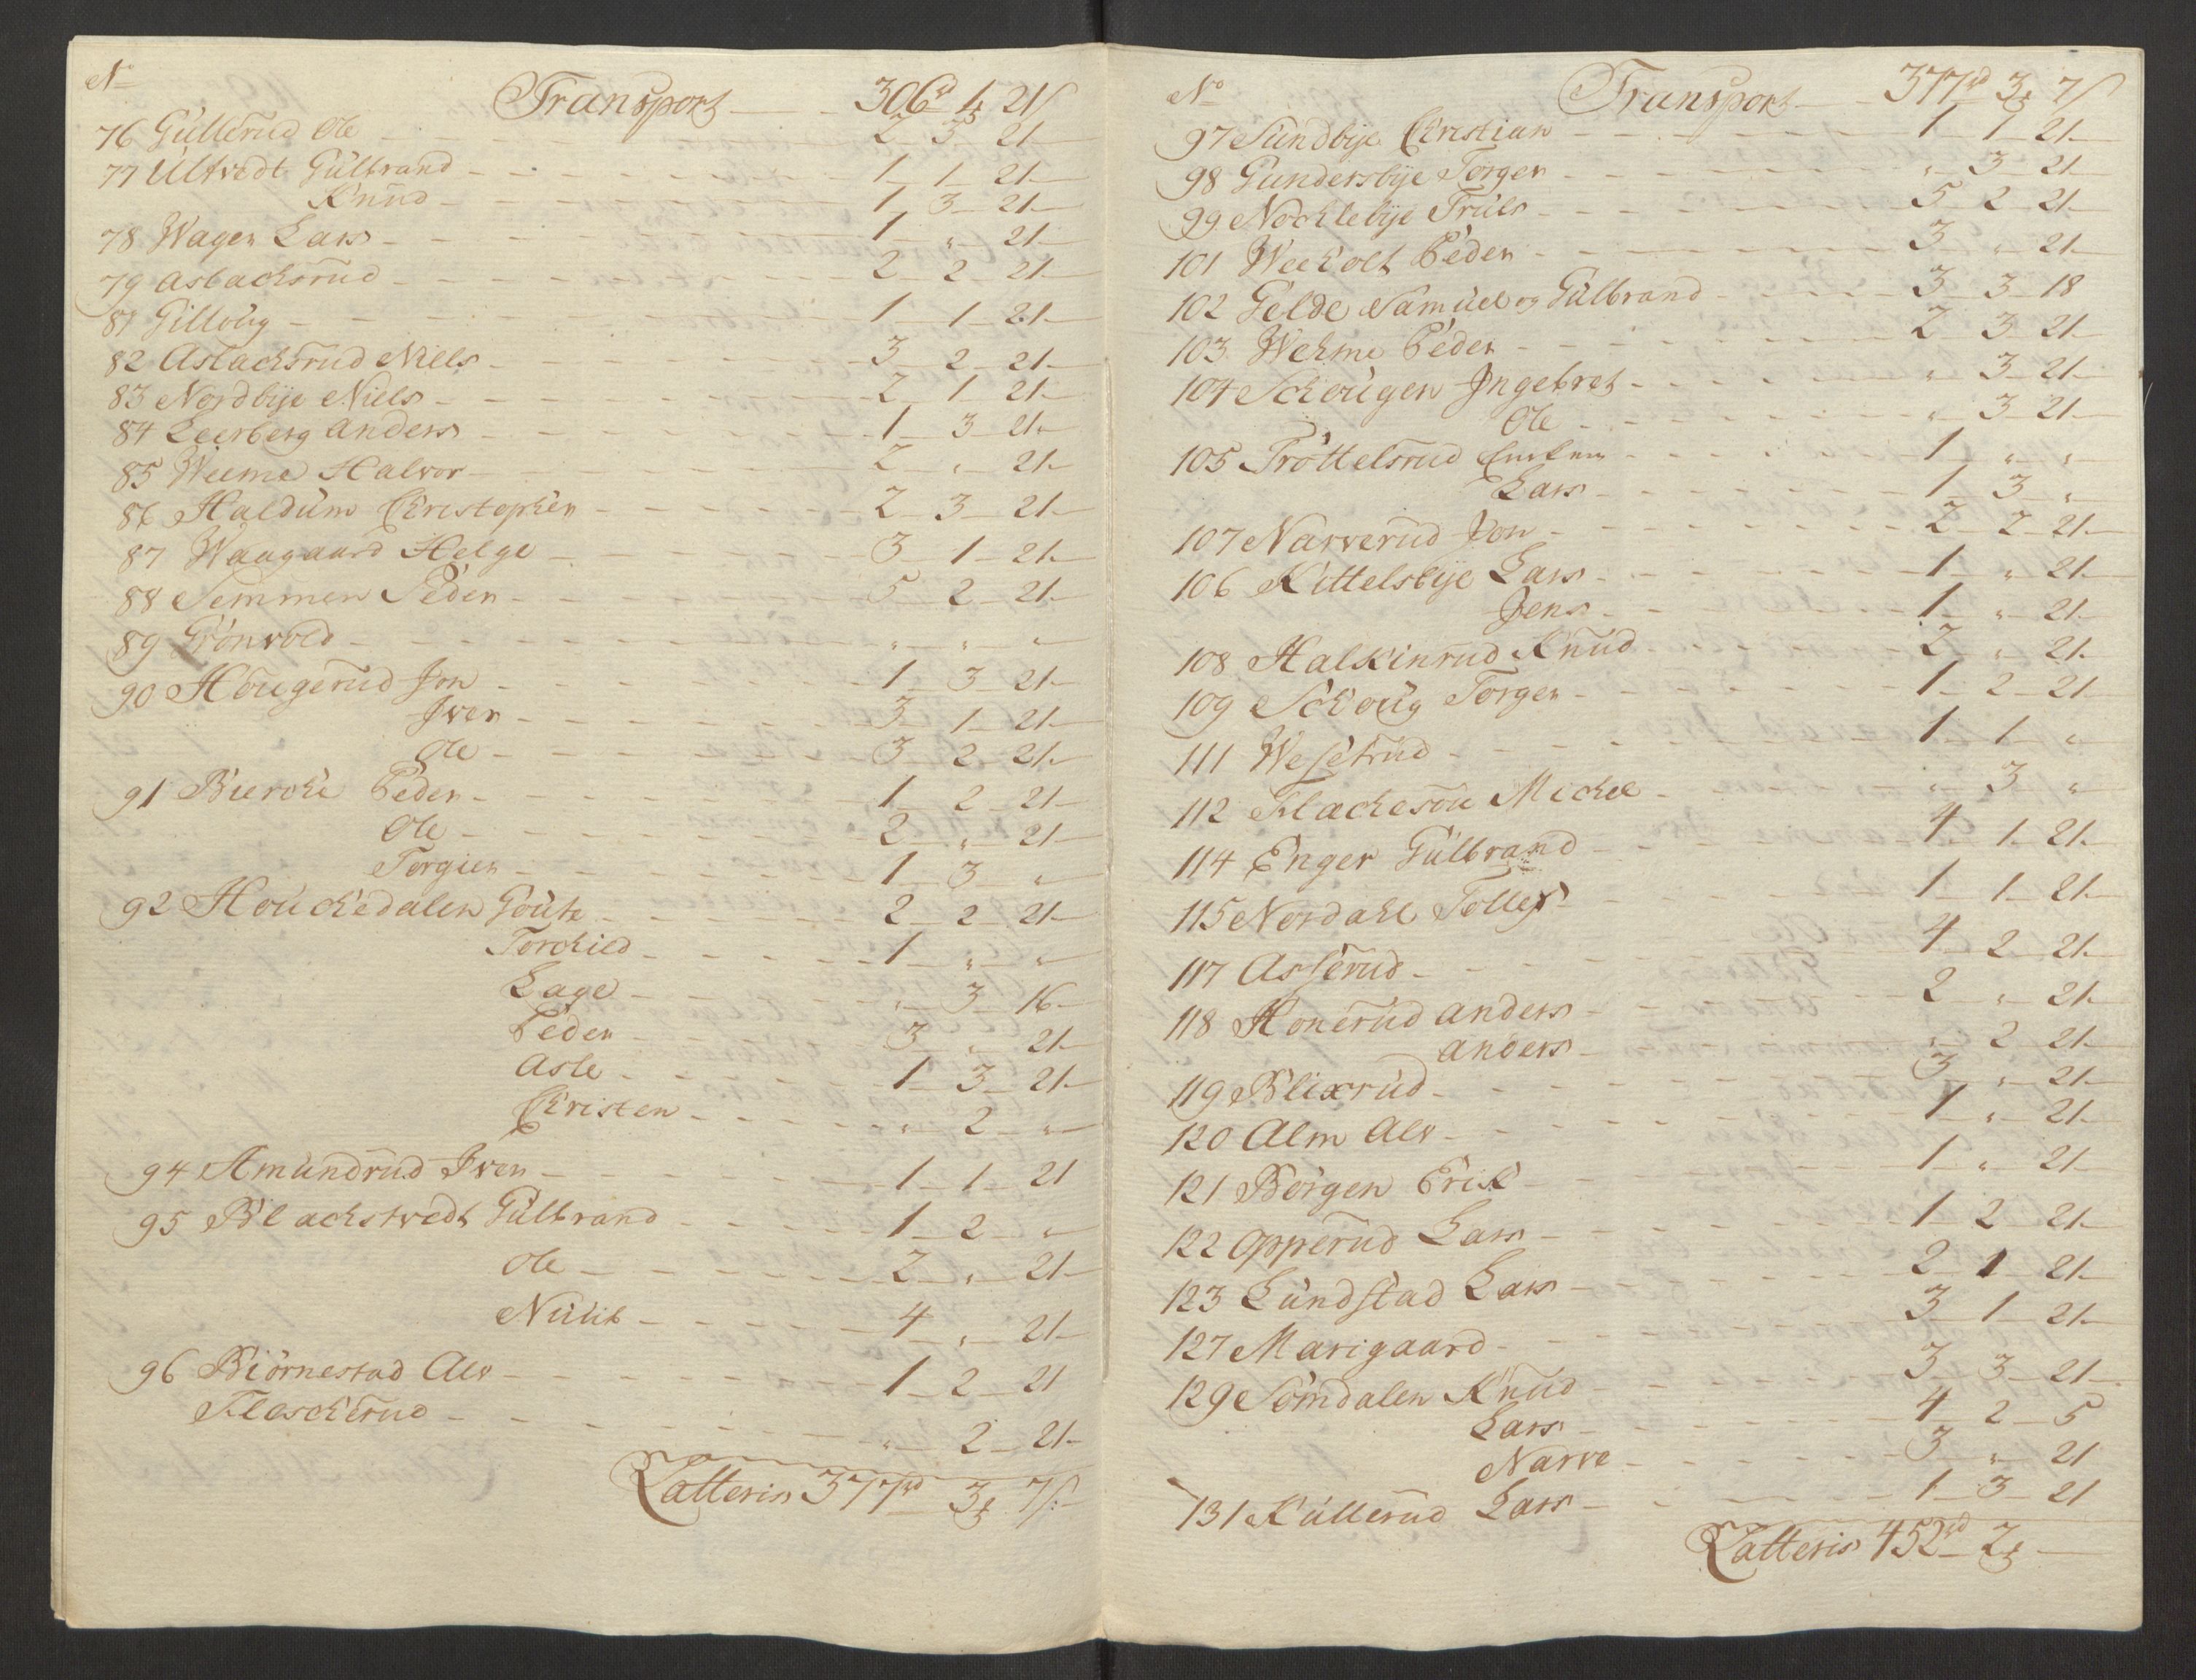 No
Transport 306rd 1 21ſ
76 Gullerud Ole 2 3 21
77 Ultvedt Gulbrand 1 1 21
Knud 1 3 21
78 Wager Lars 1 " 21
79 Asbachsrud 2 2 21
81 Gilloug 1 1 21
82 Aslachsrud Niels 3 2 21
83 Nordbye Niels 2 1 21
84 Leerberg Anders 1 3 21
85 Weeme Halvor 2 " 21
86 Haldum Christopher 2 3 21
87 Waagaard Helge 3 1 21
88 Semmen Peder 5 2 21
89 Grönvold " " "
90 Hougerud Jon 1 3 21
Iver 3 1 21
Ole 3 2 21
91 Bierche Peder 1 2 21
Ole 2 " 21
Torgier 1 3 "
92 Houchedalen Goute 2 2 21
Torchied 1 " "
Lage " 3 16
Peder 3 " 21
Asle 1 3 21
Christen " 2 "
94 Amundrud Iver 1 1 21
95 Blachstvedt Gulbrand 1 2 "
Ole 2 " 21
4 " 21
96 Biörnestad Alv 1 2 21
Flescherud " 2 21
Latteris 377rd 3 7ſ
No
Transport 377rd 3 7ſ
97 Sundbye Christian 1 1 21
98 Gundersbye Torger " 3 21
99 Nochlebye Truls 5 2 21
101 Weeholt Peder 3 " 21
102 Gelde Samuel og Gulbrand 3 3 18
103 Wehme Peder 2 3 21
104 Schougen Ingebret " 3 21
Ole " 3 21
105 Tröttelsrud 1 " "
Lars 1 3 "
107 Narverud Jon 2 2 21
106 Kittelsbye Lars 1 " 21
Jens 1 " 21
108 Halkinrud Knud 2 " 21
109 Schoug Torger 1 2 21
111 Weſetrud 1 1 "
112 Flachesöu Michel " 3 "
114 Enger Gulbrand 4 1 21
115 Nordahl Tollef 1 1 21
117 Asſerud 4 2 21
118 Honerud Anders 2 " 21
Anders " 2 21
119 Blixrud 3 " 21
120 Alm Alv 1 " 21
121 Börgen Erik 1 " 21
122 Opperud Lars 1 2 21
123 Lundstad Lars 2 1 21
127 Marigaard 3 1 21
129 Sömdalen Knud 3 3 21
Lars 4 2 5
Narve 3 " 21
131 Kullerud Lars 1 3 21
Latteris 452rd 2